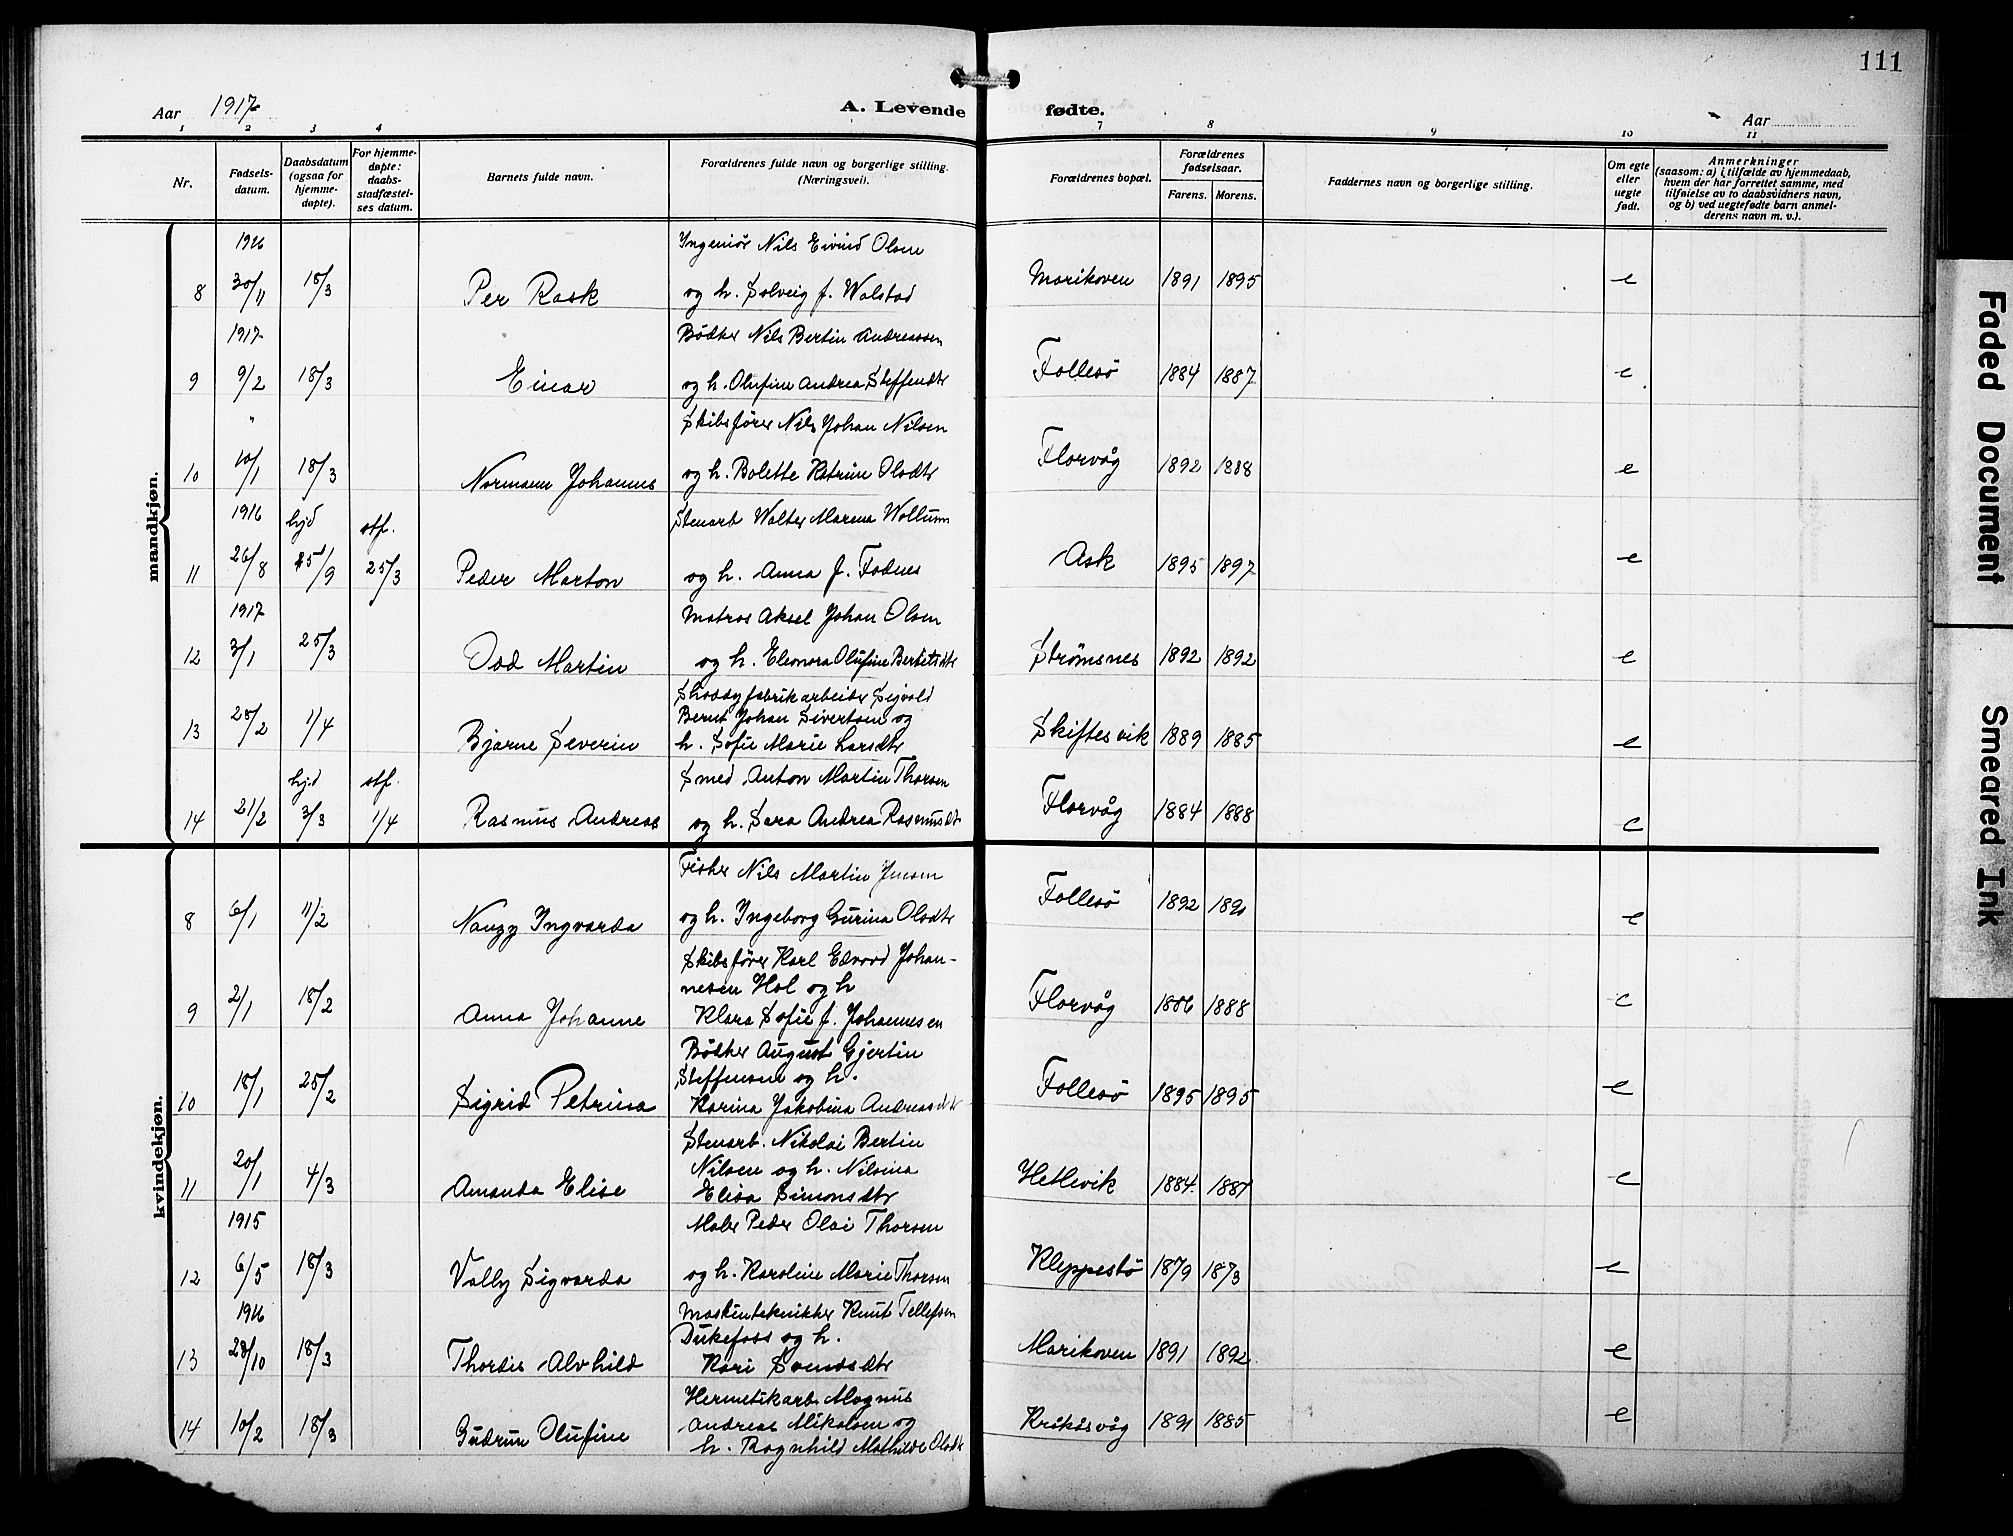 111
Aar 1917 A. Levende fødte. Aar
1 2 3 4 7 8 9 10 11
Nr.
Fødsels-
datum.
Daabsdatum
(ogsaa for
hjemme-
døpte).
For hjemme-
døpte:
daabs-
stadfæstel-
ses datum.
Barnets fulde navn.
Forældrenes fulde navn og borgerlige stilling.
(Næringsvei).
Forældrenes bopæl.
Forældrenes
fødselsaar.
Farens. Morens.
Faddernes navn og borgerlige stilling.
Om egte
eller
uegte
født.
Anmerkninger
(saasom: a) i tilfælde av hjemmedaab,
hvem der har forrettet samme, med
tilføielse av to daabsvidners navn,
og b) ved uegtefødte barn anmel-
derens navn m. v.).
mandkjøn.
1916 Ingeniör Nils Eivind Olsen
8 30/11 18/3 Per Rask og h. Solveig f. Walstad Marikoven 1891 1895 e
1917 Bödker Nils Bertin Andreassen
9 9/2 18/3 Einar og h. Olufine Andrea Steffensdtr Follesö 1884 1887 e
" Skibsförer Nils Johan Nilsen
10 10/1 18/3 Normann Johannes og h. Bolette Katrine Olsdtr Florvåg 1892 1888 e
1916 hjd stf. Stenarb Walter Wollum
11 26/8 25/9 25/3 Peder Marton og h. Anna f. Fadnes Ask 1895 1897 e
1917 Matros Aksel Johan Olsen
12 3/1 25/3 Odd Martin og h. Eleonora Olufine Strömsnes 1892 1892 e
Shoddyfabrikarbeider Sigvald
Bernt Johan Sivertsen og
13 28/2 1/4 Bjarne Severin h. Sofie Marie Larsdtr Skiftesvik 1889 1885 e
hjd stf. Smed Anton Martin Thorsen
14 21/2 3/3 1/4 Rasmus Andreas og h. Sara Andrea Rasmusdtr Florvåg 1884 1888 e
kvindekjøn.
Fisker Nils Martin Jensen
8 6/1 11/2 Nanzy Ingvarda og h. Ingeborg Gurina Olsdtr Follesö 1892 1891 e
Skibsförer Karl Edvard Johan-
nesen Hol og h
9 2/1 18/2 Anna Johanne Klara Sofie f. Johannesen Florvåg 1886 1888 e
Bödker August Gjertin
Steffensen og h.
10 18/1 25/2 Sigrid Petrina Karina Jakobina Andreasdtr Follesö 1895 1895 e
Stenarb. Nikolai Bertin
Nilsen og h. Nilsina
11 20/1 4/3 Amanda Elise Elisa Simonsdtr Hetlevik 1884 1887 e
1915 Maler Peder Olai Thorsen
12 6/5 18/3 Vally Sigvarda og h. Karoline Marie Thorsen Kleppestö 1879 1873 e
1916 Maskintekniker Knut Tellefsen
Dukefoss og h.
13 28/10 18/3 Thordis Alvhild Kari Svendsdtr Marikoven 1891 1892 e
Hermetikarb Magnus
Andreas Mikalsen og
14 10/2 18/3 Gudrun Olufine h. Ragnhild Mathilde Olsdtr Kråkåsvåg 1891 1885 e
Faded Document
Smeared Ink